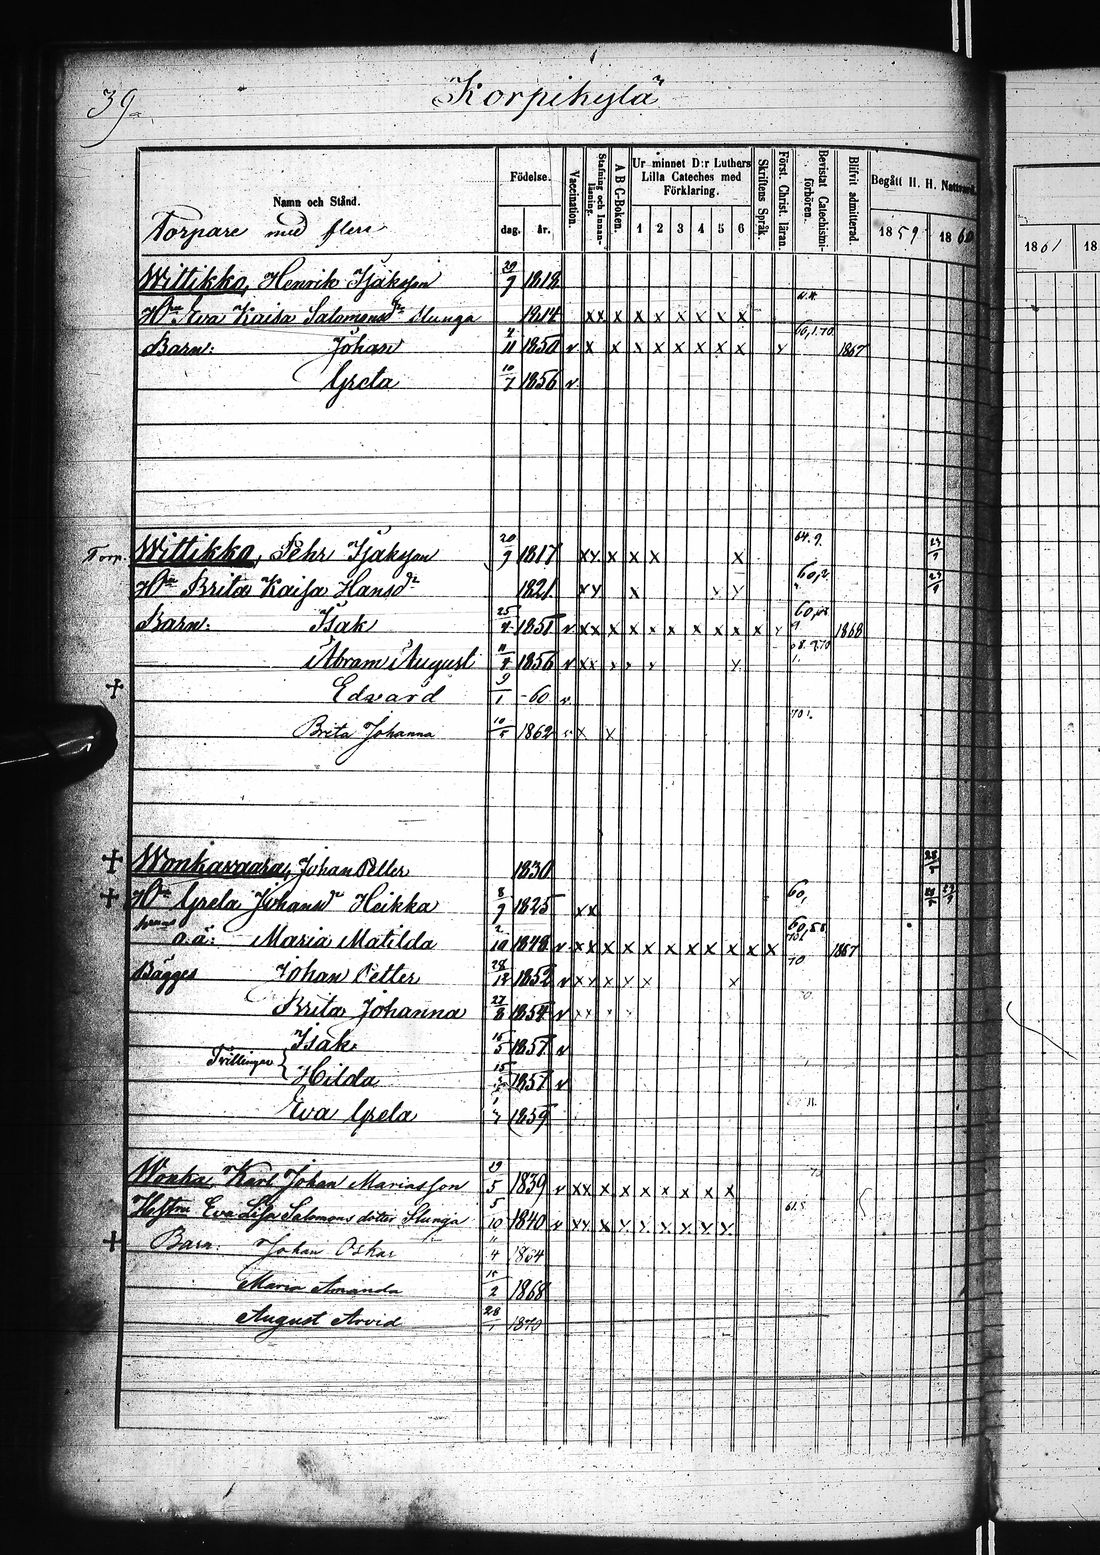 39
Korpikylä
Namn och Stånd.
Torpare med flera
Födelse.
dag. år.
Vaccination.
Stafning och Innanläsning.
A B C-Boken.
Ur minnet D:r Luthers Lilla Cateches med Förklaring.
1 2 3 4 5 6
Skriftens Språk.
Först. Christ. läran.
Bevistat Catechismiförhören.
Blifvit admitterad.
Begått H. H. Nattvard.
1859 1860
1861 18
Wittikko, Henrik Isaksson 29/9 1818
Hu Eva Kaisa Salomonsdr Slunga 1814 x x x x x x x x x
Barn: Johan 2/11 1850 v x x x x x x x x 60,1.70 1867
Greta 10/7 1856 v
Torp. Wittikko, Pehr Isaksson 20/9 1817 x x x x x x 64.9.
Hu Brita Kaisa Hansdr 1821 x x x
Barn: Isak 25/4 1851 v x x x x x x x x x x 1868
Abram August 1856 v x x
† Edvard 9/1 -60 v
Brita Johanna 10/5 1862 x x
† Wonkavaara, Johan Petter 1830
† Hu Greta Johansdr Heikka 8/9 1825 x x 60,
o.ä: Maria Matilda 2/10 1848 v x x x x x x x x x x x 1867
Bägges Johan Petter 28/12 1852 v x x x x x x 70
Brita Johanna 27/8 1854 v
Isak 15/5 1857 v
Tvillingar { Hilda 15/5 1857 v
Eva Greta 1859
Wonka, Karl Johan Mariasson 19/5 1839 v x x x x x x x x x
Hustru Eva Lisa Salomons dotter Slunga 5/10 1840 v x x x x x x x x x
† Barn: Johan Oskar 1864
Maria Amanda 15/2 1868
August Arvid 28/1 1870